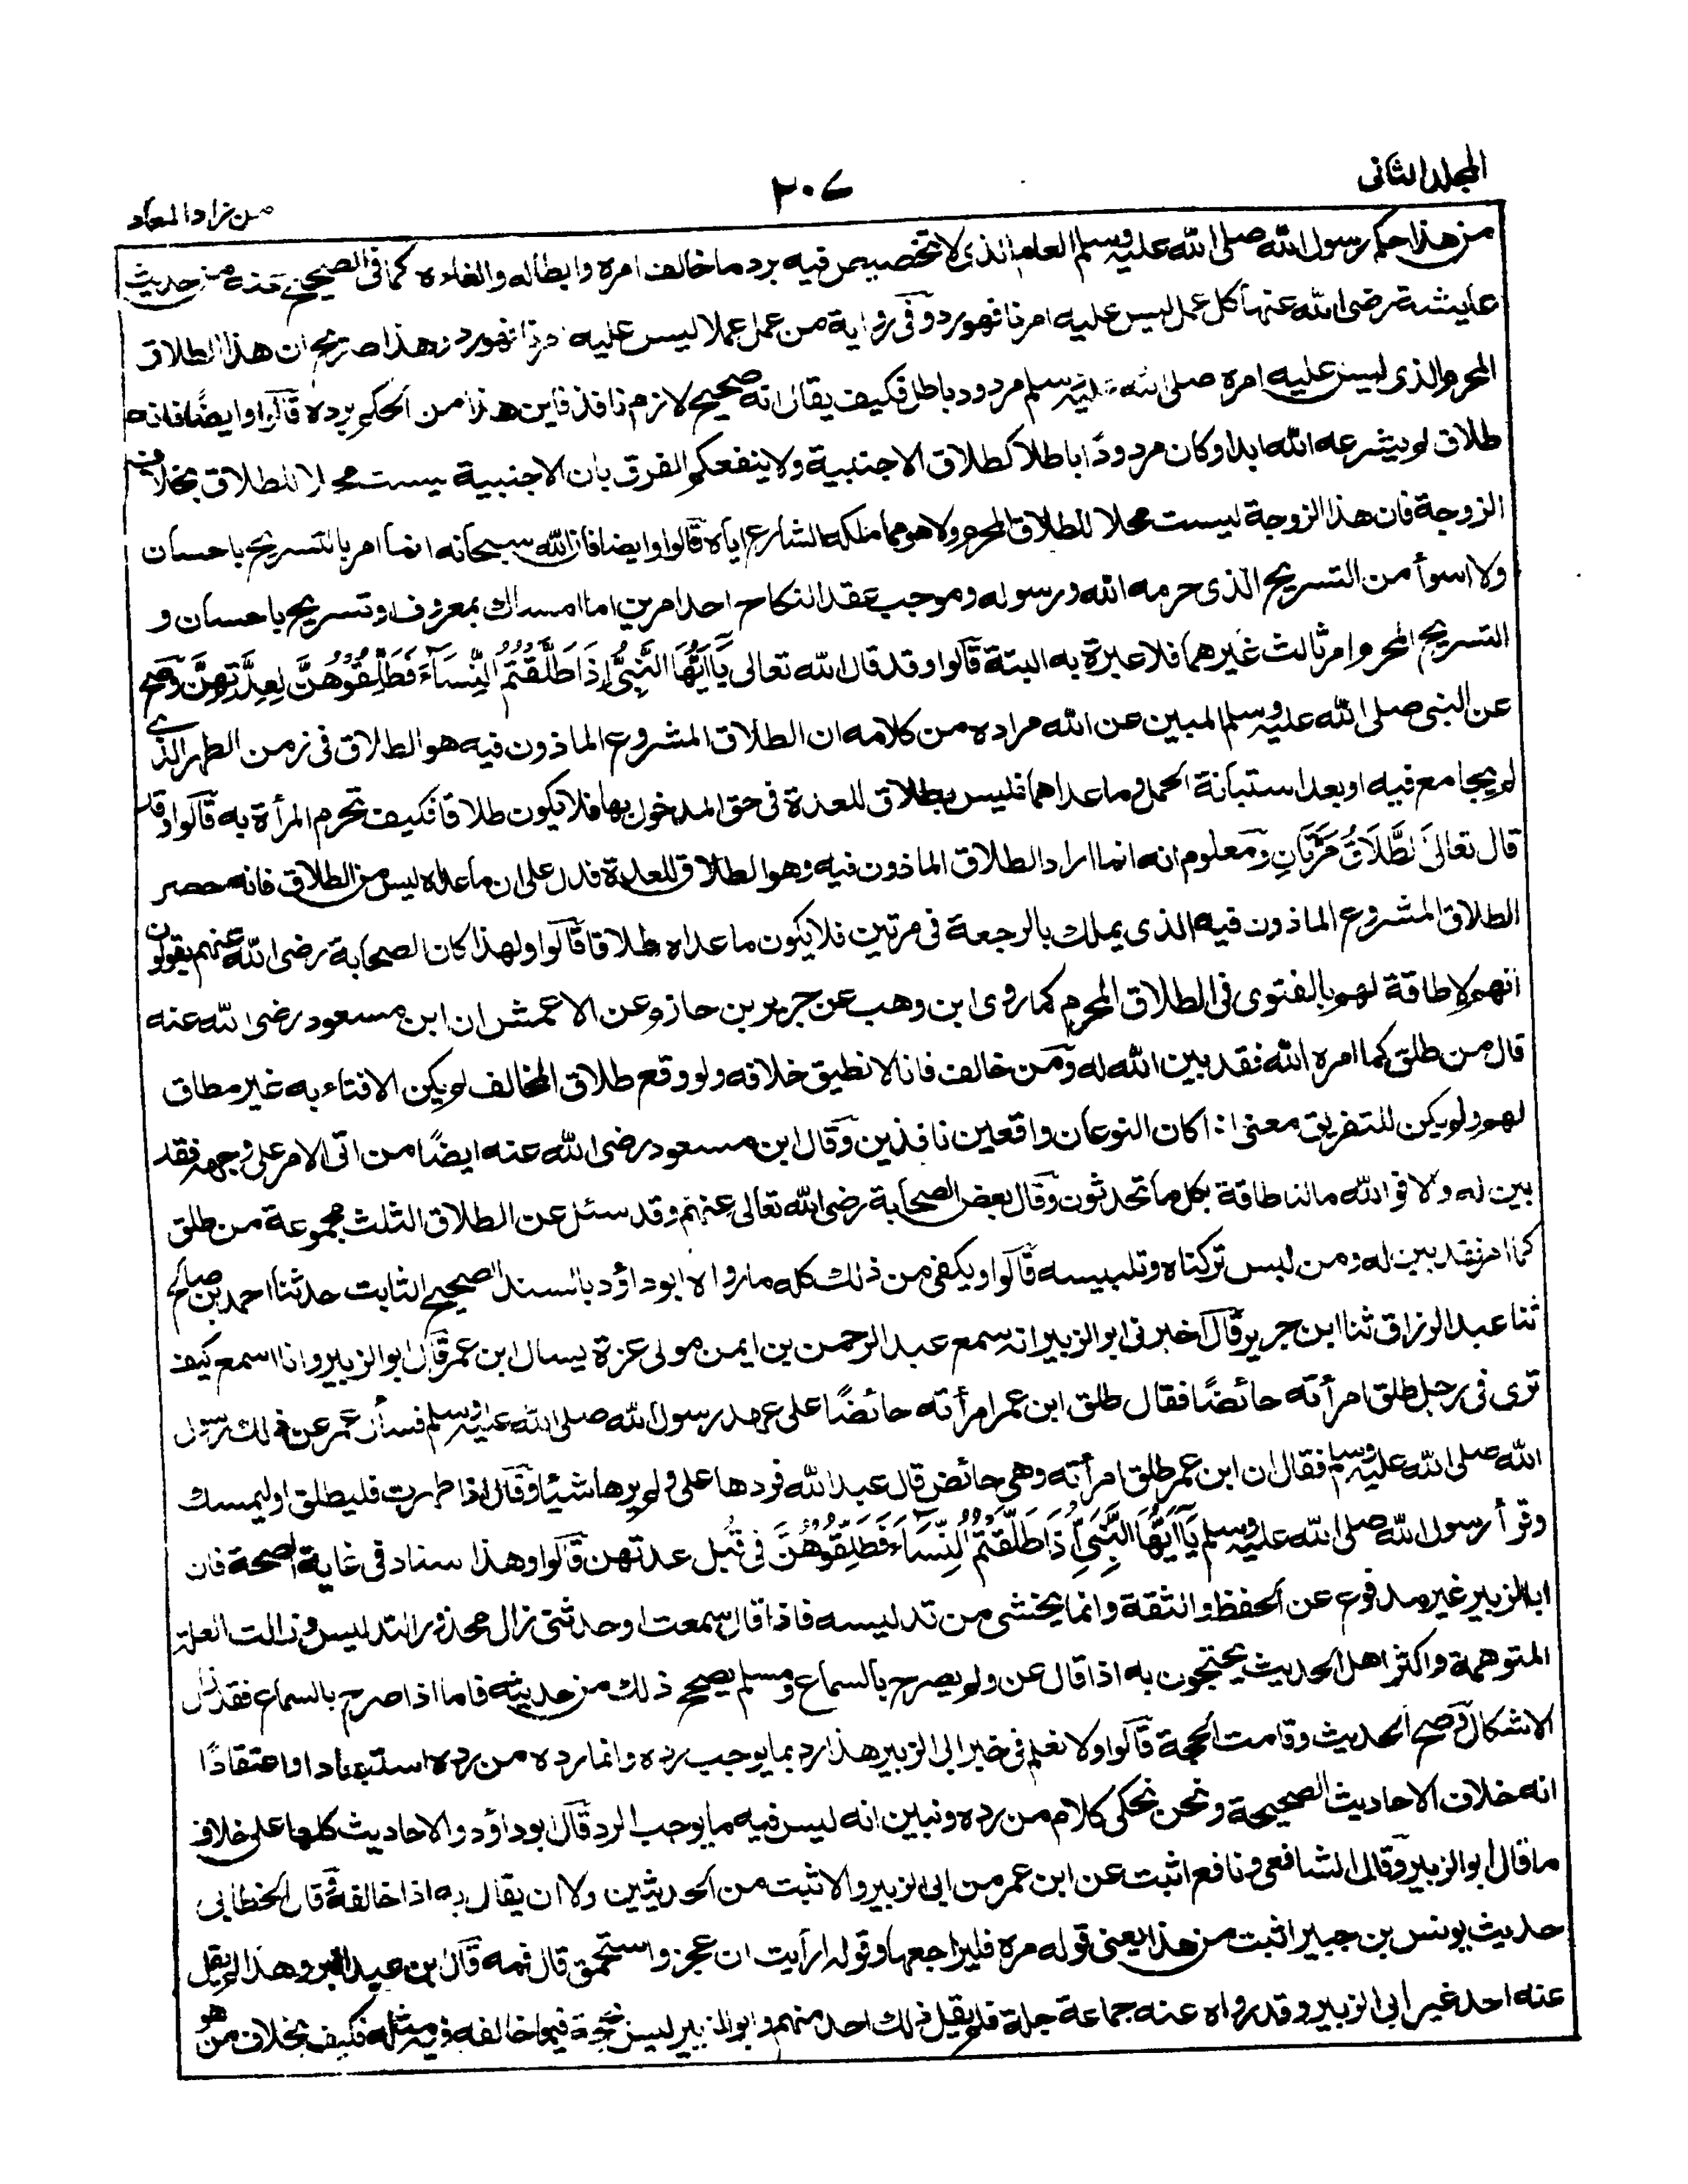 المجلد الثانى
٢٠٧
من زاد المعاد
من هذا حكم رسول الله صلى الله عليه وسلم العام الذى لا تخصيص فيه برد ما خالف امره وابطاله والغاءه كما فى الصحيح عنه من حديث
عايشة رضى الله عنها كل عمل ليس عليه امرنا فهو رد وفى رواية من عمل عملا ليس عليه امرنا فهو رد وهذا صريح ان هذا الطلاق
المحرم الذى ليس عليه امره صلى الله عليه وسلم مردود باطل فكيف يقال انه صحيح لازم نافذ فاين هذا من الحكم برده قالوا وايضًا فانه
طلاق لم يشرعه الله ابدا وكان مردودًا باطلا كطلاق الاجنبية ولا ينفعكم الفرق بان الاجنبية ليست محلا للطلاق بخلاف
الزوجة فان هذا الزوجة ليست محلا للطلاق المحرم ولا هو مما ملكه الشارع اياه قالوا وايضا فان الله سبحانه انما امر بالتسريح باحسان
ولا اسوأ من التسريح الذى حرمه الله ورسوله وموجب عقد النكاح احد امرين اما امساك بمعروف او تسريح باحسان و
التسريح المحرم امر ثالث غيرهما فلا عبرة به البتة قالوا وقد قال الله تعالى يَٓااَيُّهَا النَّبِىُّ اِذَا طَلَّقْتُمُ النِّسَآءَ فَطَلِّقُوْهُنَّ لِعِدَّتِهِنَّ وصح
عن النبى صلى الله عليه وسلم المبين عن الله مراده من كلامه ان الطلاق المشروع الماذون فيه هو الطلاق فى زمن الطهر الذى
لم يجامع فيه او بعد استبانة الحمل وما عداهما فليس بطلاق للعدة فى حق المدخول بها فلا يكون طلاقا فكيف تحرم المرأة به قالوا وقد
قال تعالى اَلطَّلَاقُ مَرَّتَانِ ومعلوم انه انما اراد الطلاق الماذون فيه وهو الطلاق للعدة فدل على ان ما عداه ليس من الطلاق فانه حصر
الطلاق المشروع الماذون فيه الذى يملك بالرجعة فى مرتين فلا يكون ما عداه طلاقا قالوا ولهذا كان الصحابة رضى الله عنهم يقولون
انهم لا طاقة لهم بالفتوى فى الطلاق المحرم كما روى ابن وهب عن جرير بن حازم عن الاعمش ان ابن مسعود رضى الله عنه
قال من طلق كما امره الله فقد بين الله له ومن خالف فانا لا نطيق خلافه ولو وقع طلاق المخالف لم يكن الافتاء به غير مطاق
لهم ولم يكن للتفريق معنى اذا كان النوعان واقعين نافذين وقال ابن مسعود رضى الله عنه ايضًا من اتى الامر على وجهه فقد
بين له والا فو الله مالنا طاقة بكل ما تحدثون وقال بعض الصحابة رضى الله تعالى عنهم وقد سئل عن الطلاق الثلث مجموعة من طلق
كما امر فقد بين له ومن لبس تركناه وتلبيسه قالوا ويكفى من ذلك كله ما رواه ابو داؤد بالسند الصحيح الثابت حدثنا احمد بن صالح
ثنا عبد الرزاق ثنا ابن جرير قال اخبرنى ابو الزبير انه سمع عبد الرحمن بن ايمن مولى عزة يسال ابن عمر قال ابو الزبير وانا اسمع كيف
ترى فى رجل طلق امرأته حائضًا فقال طلق ابن عمر امرأته حائضًا على عهد رسول الله صلى الله عليه وسلم فسأل عمر عن ذلك رسول
الله صلى الله عليه وسلم فقال ان ابن عمر طلق امرأته وهى حائض قال عبد الله فردها على ولم يرها شيئا وقال اذا طهرت فليطلق او ليمسك
وقرأ رسول الله صلى الله عليه وسلم يَٓااَيُّهَا النَّبِىُّ اِذَا طَلَّقْتُمُ النِّسَآءَ فَطَلِّقُوْهُنَّ فى قُبُل عدتهن قالوا وهذا اسناد فى غاية الصحة فان
ابا الزبير غير مدفوع عن الحفظ والثقة وانما يخشى من تدليسه فاذا قال سمعت او حدثنى زال محذور التدليس وزالت العلة
المتوهمة واكثر اهل الحديث يحتجون به اذا قال عن ولم يصرح بالسماع ومسلم يصحح ذلك من حديثه فاما اذا صرح بالسماع فقد زال
الاشكال وصح الحديث وقامت الحجة قالوا ولا نعلم فى خبر ابى الزبير هذا رد بما يوجب رده وانما رده من رده استبعادا واعتقادًا
انه خلاف الاحاديث الصحيحة ونحن نحكى كلام من رده ونبين انه ليس فيه ما يوجب الرد قال ابو داؤد والاحاديث كلها على خلاف
ما قال ابو الزبير وقال الشافعى ونافع اثبت عن ابن عمر من ابى الزبير والاثبت من الحديثين ولا ان يقال به اذا خالفه وقال الخطابى
حديث يونس بن جبير اثبت من هذا يعنى قوله مره فليراجعها وقوله ارأيت ان عجز واستحمق قال فمه قال ابن عبد البر وهذا لم يقل
عنه احد غير ابى الزبير وقد رواه عنه جماعة جلة فلم يقل ذلك احد منهم وابو الزبير ليس بحجة فيما خالفه فيه مثله فكيف بخلاف من هو